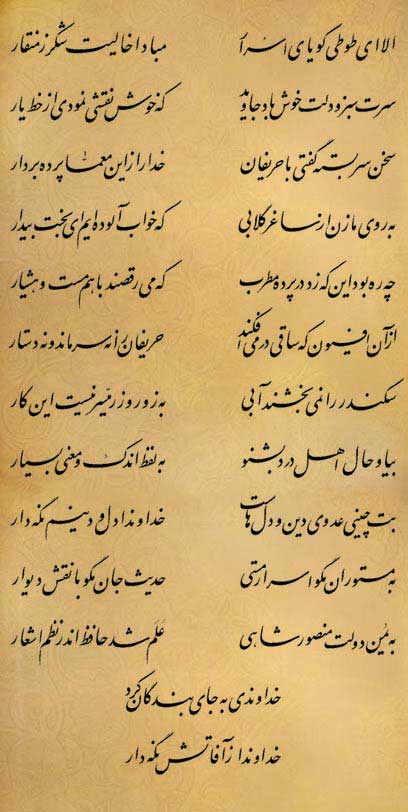 الا ای طوطی گویای اسرار مبادا خالیت شکر ز منقار
سرت سبز و دلت خوش باد جاوید که خوش نقشی نمودی از خط یار
سخن سربسته گفتی با حریفان خدا را زین معما پرده بردار
به روی ما زن از ساغر گلابی که خواب آلوده ایم ای بخت بیدار
چه ره بود این که زد در پرده مطرب که می رقصند با هم مست و هشیار
از آن افیون که ساقی در می افکند حریفان را نه سر ماند و نه دستار
سکندر را نمی بخشند آبی به زور و زر میسر نیست این کار
بیا و حال اهل درد بشنو به لفظ اندک و معنی بسیار
بت چینی عدوی دین و دل هاست خداوندا دل و دینم نگه دار
به مستوران مگو اسرار مستی حدیث جان مگو با نقش دیوار
به یمن دولت منصور شاهی علم شد حافظ اندر نظم اشعار
خداوندی به جای بندگان کرد
خداوندا ز آفاتش نگه دار